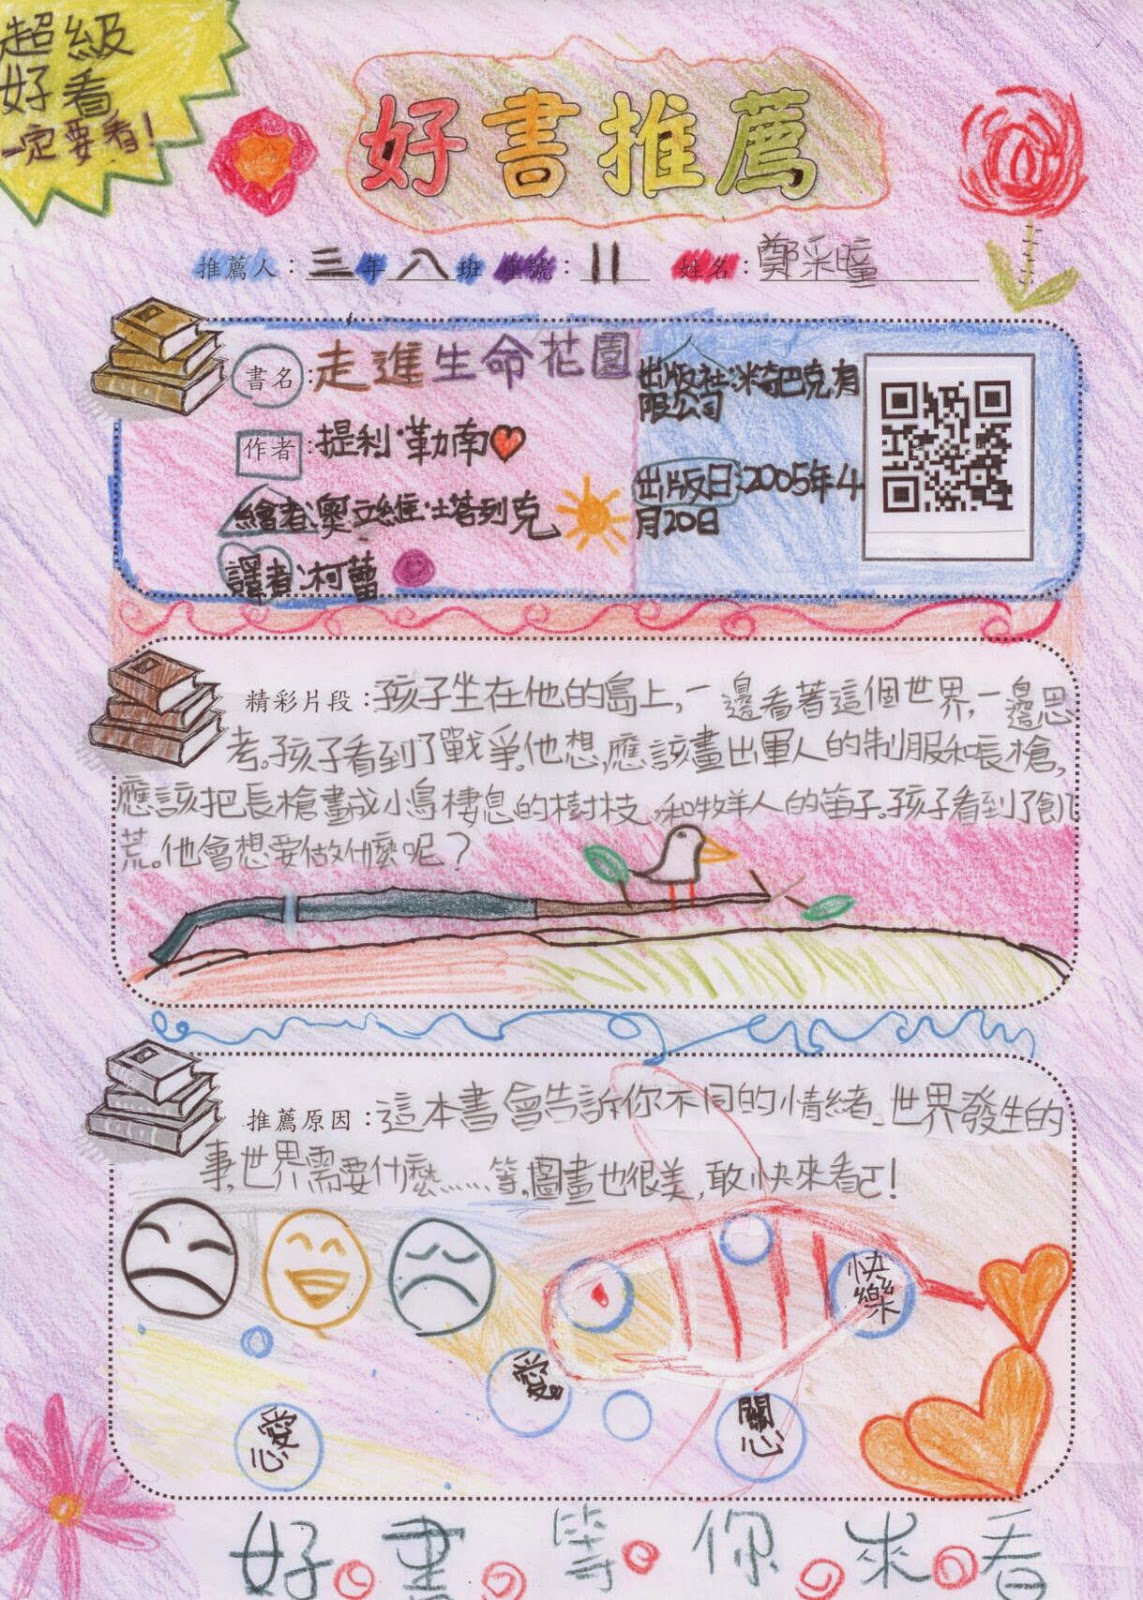 超級
好看
一定要看！
好書推薦
推薦人：三年八班 座號：11 姓名：鄭采瞳
書名：走進生命花園
作者：提利·勒南
繪者：奧立維·塔列克
譯者：柯蕾
出版社：米奇巴克有
限公司
出版日：2005年4
月20日
精彩片段：孩子坐在他的島上，一邊看著這個世界，一邊思
考。孩子看到了戰爭。他想，應該畫出軍人的制服和長槍，
應該把長槍畫成小鳥棲息的樹枝，和牧羊人的笛子。孩子看到了飢
荒。他會想要做什麼呢？
推薦原因：這本書會告訴你不同的情緒、世界發生的
事，世界需要什麼……等，圖畫也很美，敢快來看ㄛ！
快樂
愛
關心
愛心
好書等你來看